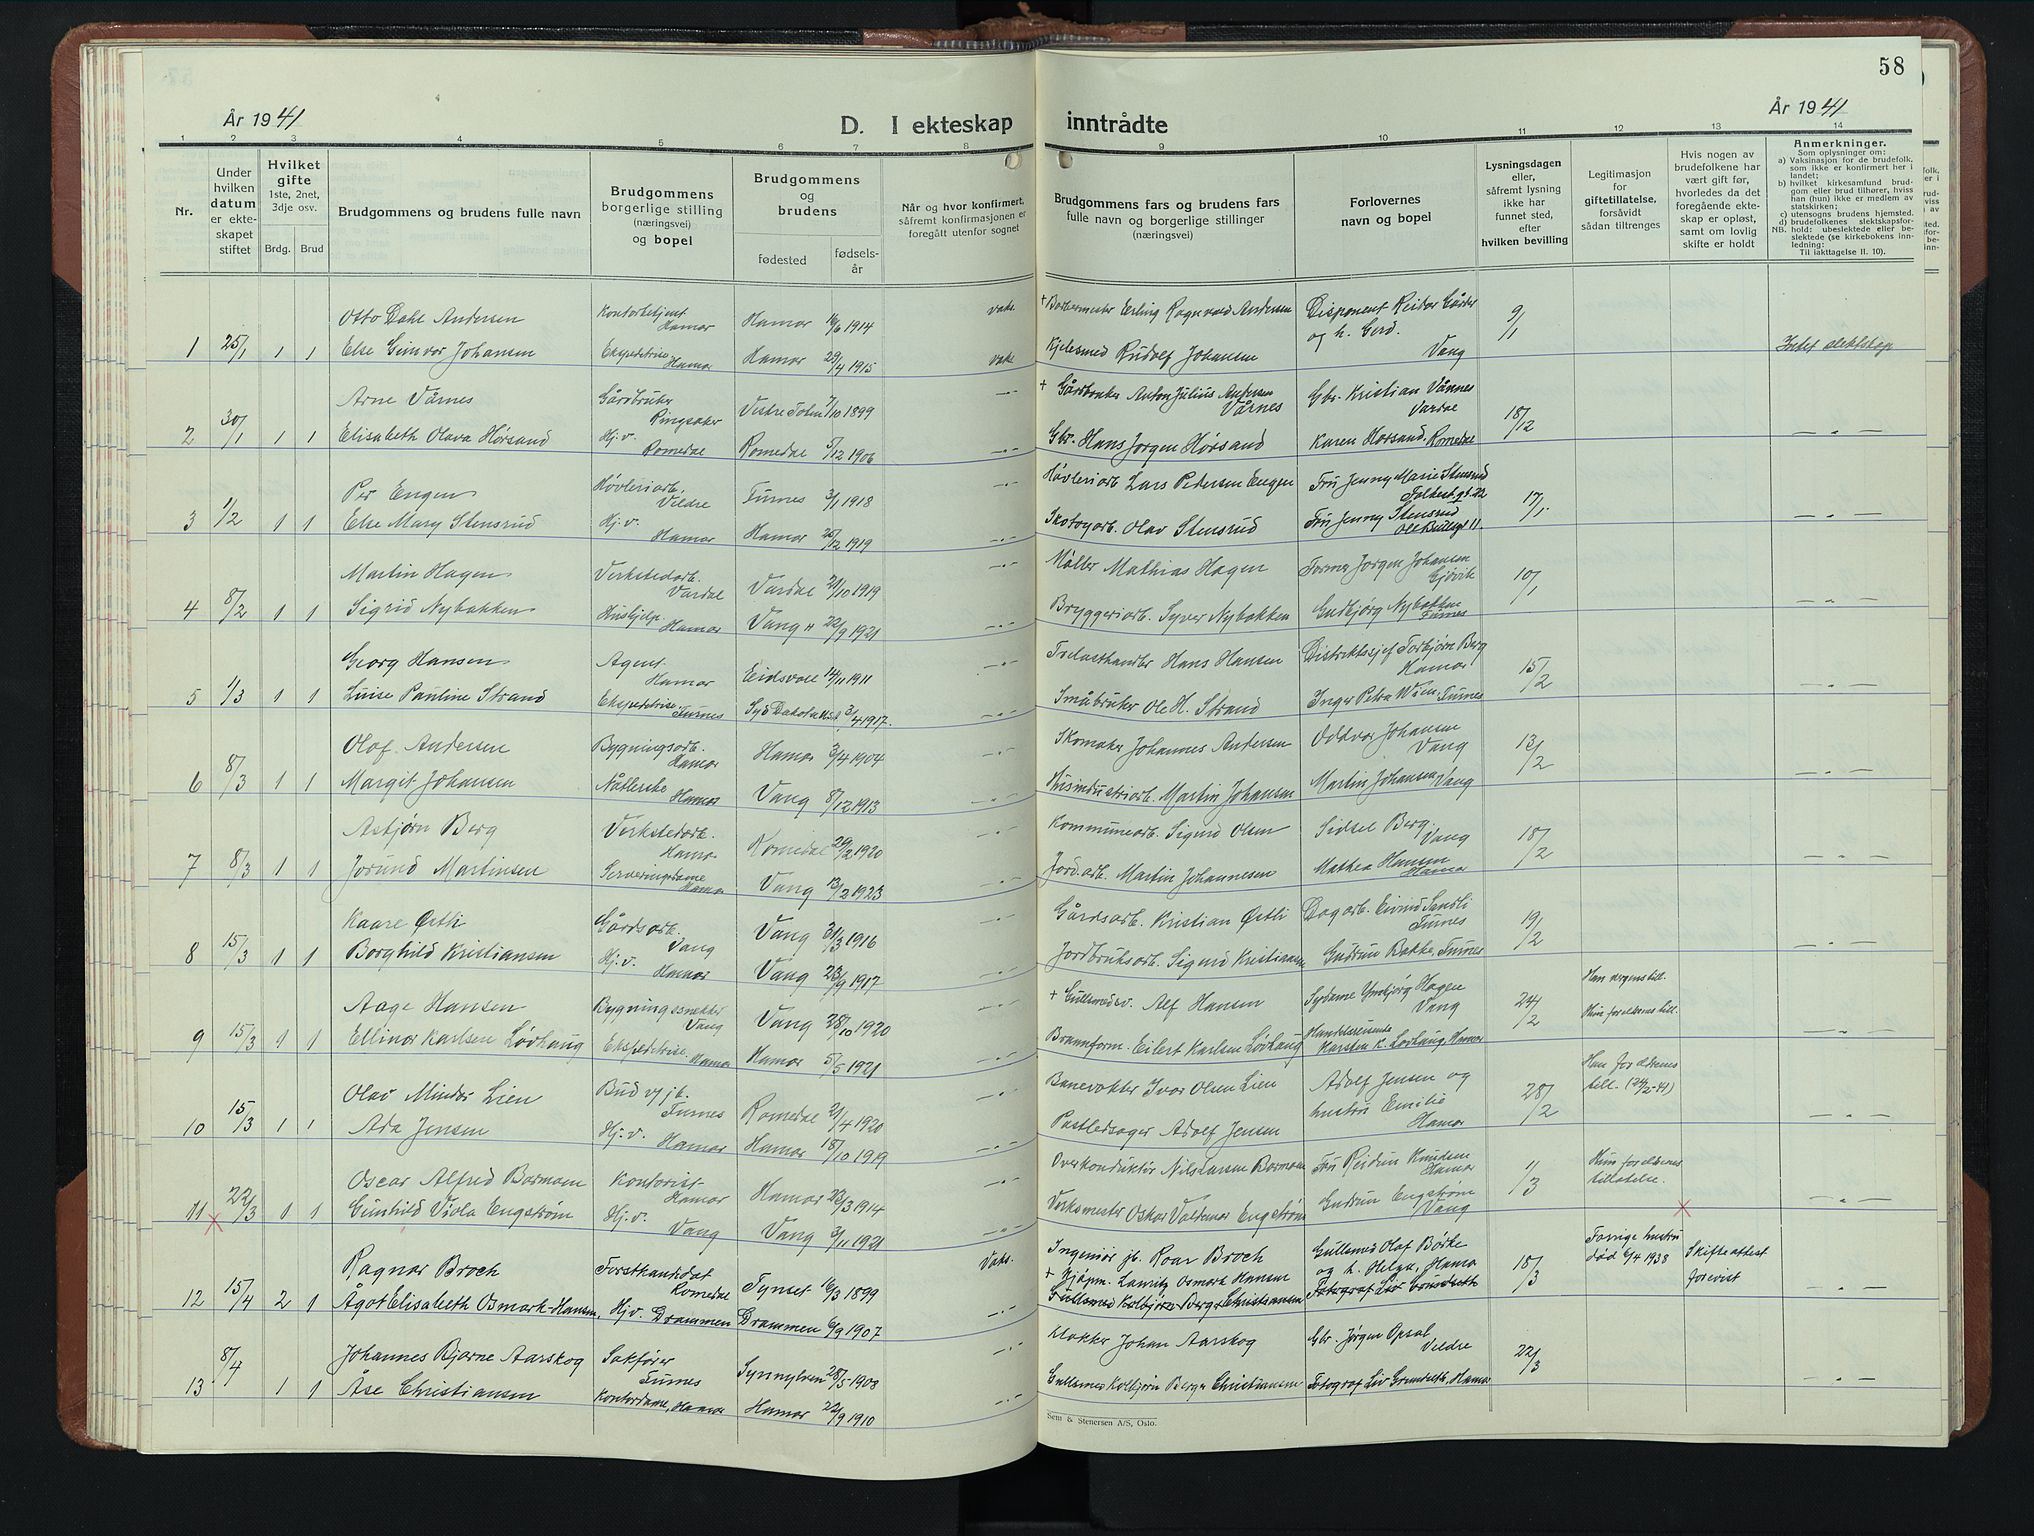 58
År 1941
D. I ekteskap inntrådte
År 1941
1 2 3 4 5 6 7 8 9 10 11 12 13 14
Nr.
Under hvilken datum er ekteskapet stiftet
Hvilket gifte 1ste, 2net, 3dje osv.
Brdg. Brud
Brudgommens og brudens fulle navn
Brudgommens borgerlige stilling (næringsvei) og bopel
Brudgommens og brudens
fødested
fødselsår
Når og hvor konfirmert, såfremt konfirmasjonen er foregått utenfor sognet
Brudgommens fars og brudens fars fulle navn og borgerlige stillinger (næringsvei)
Forlovernes navn og bopel
Lysningsdagen eller, såfremt lysning ikke har funnet sted, efter hvilken bevilling
Legitimasjon for giftetillatelse, forsåvidt sådan tiltrenges
Hvis nogen av brudefolkene har vært gift før, hvorledes da det foregående ekteskap er opløst, samt om lovlig skifte er holdt
Anmerkninger.
Som oplysninger om:
a) Vaksinasjon for de brudefolk, som ikke er konfirmert her i landet;
b) hvilket kirkesamfund brudgom eller brud tilhører, hviss han (hun) ikke er medlem av statskirken;
c) utensogns brudens hjemsted.
d) brudefolkenes slektskapsforhold: ubeslektede eller beslektede (se kirkebokens innledning:
NB. Til iakttagelse II. 10).
Otto Dahl Andersen Kontorbetjent Hamar Hamar 16/6 1914 vaks. + Bakermester Erling Ragnvald Andersen Disponent Reidar Gårder og h. Gerd. Vang 9/1
1 25/1 1 1 Else Gunvor Johansen Ekspeditrise Hamar Hamar 29/4 1915 vaks Kjelesmed Rudolf Johansen Intet slektskap
Arne Vårnes Gårdbruker Ringsaker Vestre Toten 7/10 1899 + Gårdbruker Anton Julius Andersen Vårnes Gbr. Kristian Vånnes Vardal 18/12
2 30/1 1 1 Elisabeth Olava Hørsand Hj.v. Romedal Romedal 5/12 1906 Gbr. Hans Jørgen Hørsand Karen Hørsand, Romedal
Per Engen Høvleriarb. Veldre Furnes 3/1 1918 Høvleriarb. Lars Petersen Engen Fru Jenny Marie Stensrud Folkest.gt. 22 17/1
3 1/2 1 1 Else Mary Stensrud Hj.v. Hamar Hamar 25/12 1919 Skotøyarb. Olav Stensrud Fru Jenny Stensrud Ole Bullsgt 11.
Martin Hagen Verkstedarb. Vardal Vardal 21/10 1919 Møller Mathias Hagen Former Jørgen Johansen Gjøvik 10/1
4 8/2 1 1 Sigrid Nybakken Hushjelp. Hamar Vang H 22/9 1921 Bryggeriarb. Syver Nybakken Gudbjørg Nybakken Furnes
Georg Hansen Agent Hamar Eidsvoll 14/11 1911 Trelasthandler Hans Hansen Distriktssjef Torbjørn Berg Hamar 15/2
5 1/3 1 1 Luise Pauline Strand Ekspeditrise Furnes Syd Dakota 3/4 1917. Småbruker Ole H. Strand Inger Petra Wien, Furnes
Olaf Andersen Bygningsarb. Hamar Hamar 3/4 1904 Skomaker Johannes Andersen Oddvar Johansen Vang 13/2
6 8/3 1 1 Margit Johansen Nåtlerske Hamar Vang 8/12 1913 Husindustriarb. Martin Johansen Martin Johansen, Vang
Asbjørn Berg Verkstedarb. Hamar Romedal 29/2 1920 Kommunearb. Sigurd Olsen Sidsel Berg. Vang 18/2
7 8/3 1 1 Jorund Martinsen Serveringsdame Hamar Vang 13/2 1923 Jord.arb. Martin Johannesen Mathea Hansen Hamar
Kaare Østli Gårdsarb. Vang Vang 31/3 1916 Gårdsarb. Kristian Østli Dagarb. Eivind Sandli Furnes 19/2
8 15/3 1 1 Borghild Kristiansen Hj.v. Hamar Vang 23/9 1917 Jordbruksarb. Sigurd Kristiansen Gudrun Bakke, Furnes
Aage Hansen Bygningssnekker Vang Vang 28/10 1920 + Gullsmedsv. Alf Hansen Sydame Ynnbjørg Hagen Vang 24/2 Han vergens till.
9 15/3 1 1 Ellinor Karlsen Løvhaug Ekspeditrise. Hamar Hamar 5/5 1921 Brannform. Eilert Karlsen Løvhaug Handelsreisende Karsten K. Løvhaug, Hamar Hun foreldrenes till.
Olav Mindor Lien Bud v/jb. Furnes Romedal 21/4 1920 Banevokter Ivar Olsen Lien Adolf Jensen og hustru Emilie Hamar 28/2 Han foreldrenes till. (24/2-41)
10 15/3 1 1 Ada Jensen Hj.v. Hamar Hamar 18/10 1919 Postledsager Adolf Jensen
Oscar Alfred Bormoen Kontorist Hamar Hamar 23/3 1914 Overkonduktør Nils Larsen Bormoen Fru Reidun Knudsen Hamar 1/3 Hun foreldrenes tillatelse.
11 22/3 1 1 Gunhild Viola Engstrøm Hj.v. Vang Vang 3/11 1921 Verksmester Oskar Valdemar Engstrøm Gudrun Engstrøm Vang
Ragnar Broch Forstkandidat Romedal Tynset 16/3 1899 Vaks. Ingeniør jb. Roar Broch Gullsmed Olaf Børke og h. Helga, Hamar 18/3 Forrige hustru død 6/4 1938 Skifteattest forevist
12 15/4 2 1 Ågot Elisabeth Osmark-Hansen, Hj.v. Drammen Drammen 6/9 1907 + Kjøpm. Lauritz Osmark Hansen
Gullsmed Kolbjørn Berger Christiansen Fotograf Liv Grundseth
Johannes Bjarne Aarskog Sakfører Furnes Synnylven 28/5 1908 Klokker Johan Aarskog Gbr. Jørgen Opsal Veldre 22/3
13 8/4 1 1 Åse Christiansen Kontordame, Hamar Hamar 22/9 1910 Gullsmed Kolbjørn Berger Christiansen Fotograf Liv Grundseth, Hamar
Sem & Stenersen A/S, Oslo.